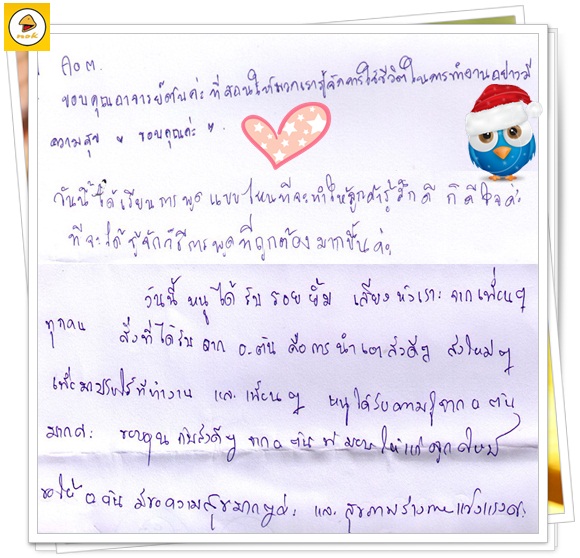 nok
Aom.
ขอบคุณอาจารย์ตันค่ะที่สอนให้พวกเรารู้จักการใช้ชีวิตในการทำงานอย่างมี
ความสุข " ขอบคุณค่ะ "
วันนี้ได้เรียนการพูดแบบไหนที่จะทำให้ลูกค้ารู้สึกดี ก็ดีใจค่ะ
ที่จะได้รู้จักวิธีการพูดที่ถูกต้องมากขึ้นค่ะ
วันนี้ หนูได้รับรอยยิ้ม เสียงหัวเราะ จากเพื่อนๆ
ทุกคน สิ่งที่ได้รับจาก อ.ตัน คือการนำเอาสิ่งดีๆ สิ่งใหม่ๆ
เพื่อมาปรับใช้ที่ทำงาน และเพื่อนๆ หนูได้รับความรู้จาก อ ตัน
มากค่ะ ขอบคุณ สิ่งดีๆ จาก อ ตัน ที่มอบให้แก่
ขอให้ อ ตัน มีความสุขมากๆค่ะ และ สุขภาพร่างกายแข็งแรงค่ะ